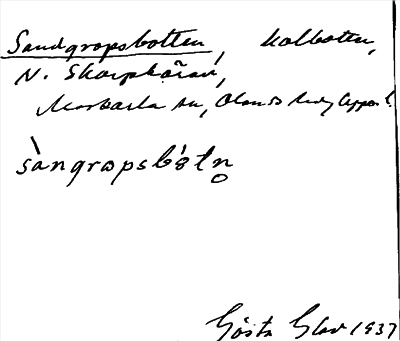 Sandgropsbotten, kolbotten,
N. Skarpkäran,
Marbacka su, Olands hd, Uppsl.
sàngrωpsbὸtn̥
Gösta Glav 1937